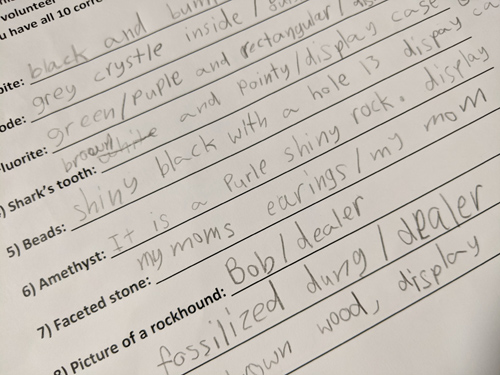 volunteer
u have all 10 corre
bite: black and bum
grey crystle inside /
ode: green/puple and rectangular/
luorite: brown and pointy/display case
) Shark's tooth: shiny black with a hole 13 dispay ca
5) Beads: It is a Purle shiny rock. display
6) Amethyst: my moms earings/my mom
7) Faceted stone: Bob/dealer
8) Picture of a rockhound: fossilized dung/dealer
own wood, display